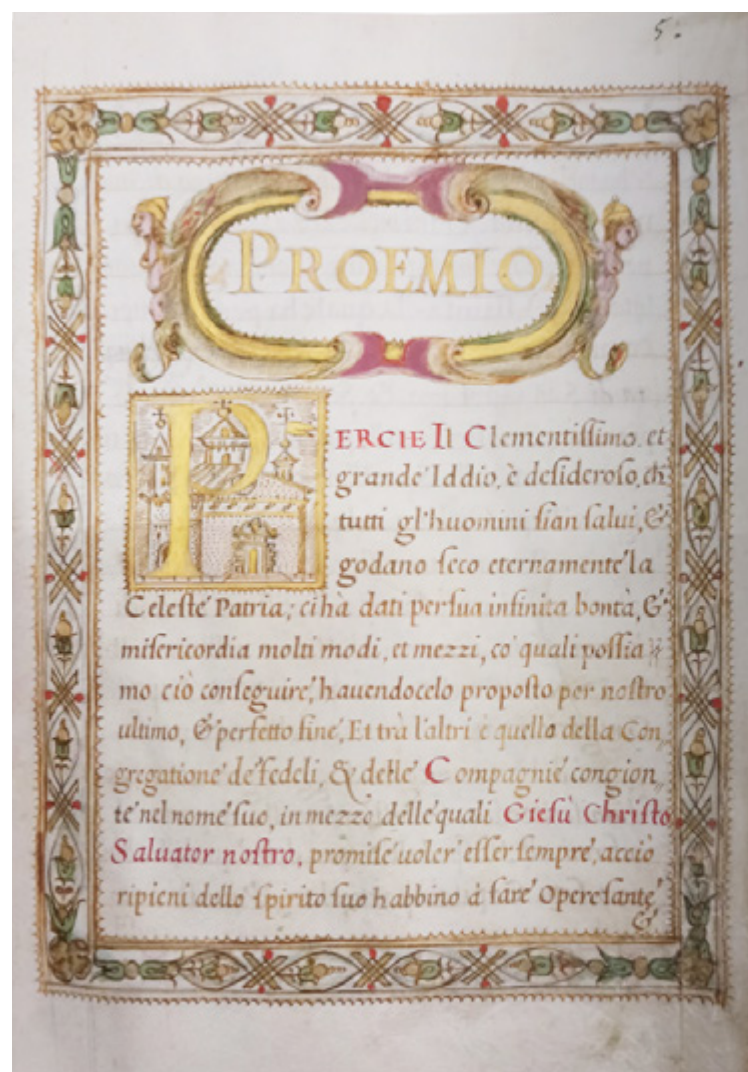 5.
PROEMIO.
PERCIE Il Clementiſſimo, et
grande Iddio, è deſideroſo, ch
tutti gl'huomini ſian ſalui, &
godano ſeco eternamente la
Celeſte Patria; ci hà dati per ſua infinita bontà, &
miſericordia molti modi, et mezzi, co' quali poſſia
mo ciò conſeguire, hauendocelo propoſto per noſtro
ultimo, & perfetto fine, Et trà l'altri è quello della Con,
gregatione de' fedeli, & delle Compagnie congion,
te nel nome ſuo, in mezzo delle quali Gieſù Chriſto
Saluator noſtro, promiſe uoler' eſſer ſempre, acciò
ripieni dello ſpirito ſuo habbino à fare Opere ſante,
&